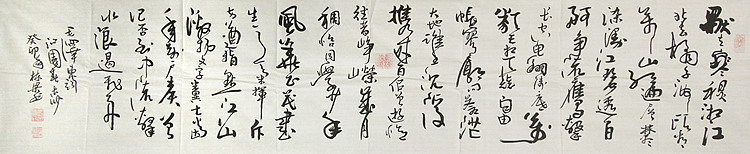 獨立寒秋湘江
北去橘子洲頭看
萬山紅遍層林盡
染漫江碧透百
舸爭流鷹擊
長空魚翔淺底萬
類霜天競自由
悵寥廓問蒼茫
大地誰主沉浮
攜來百侶曾遊憶
往昔崢嶸歲月
稠恰同學少年
風華正茂書
生意氣揮斥
方遒指點江山
激揚文字糞土當
年萬戶侯曾
記否到中流擊
水浪遏飛舟
毛澤東詞
沁園春長沙